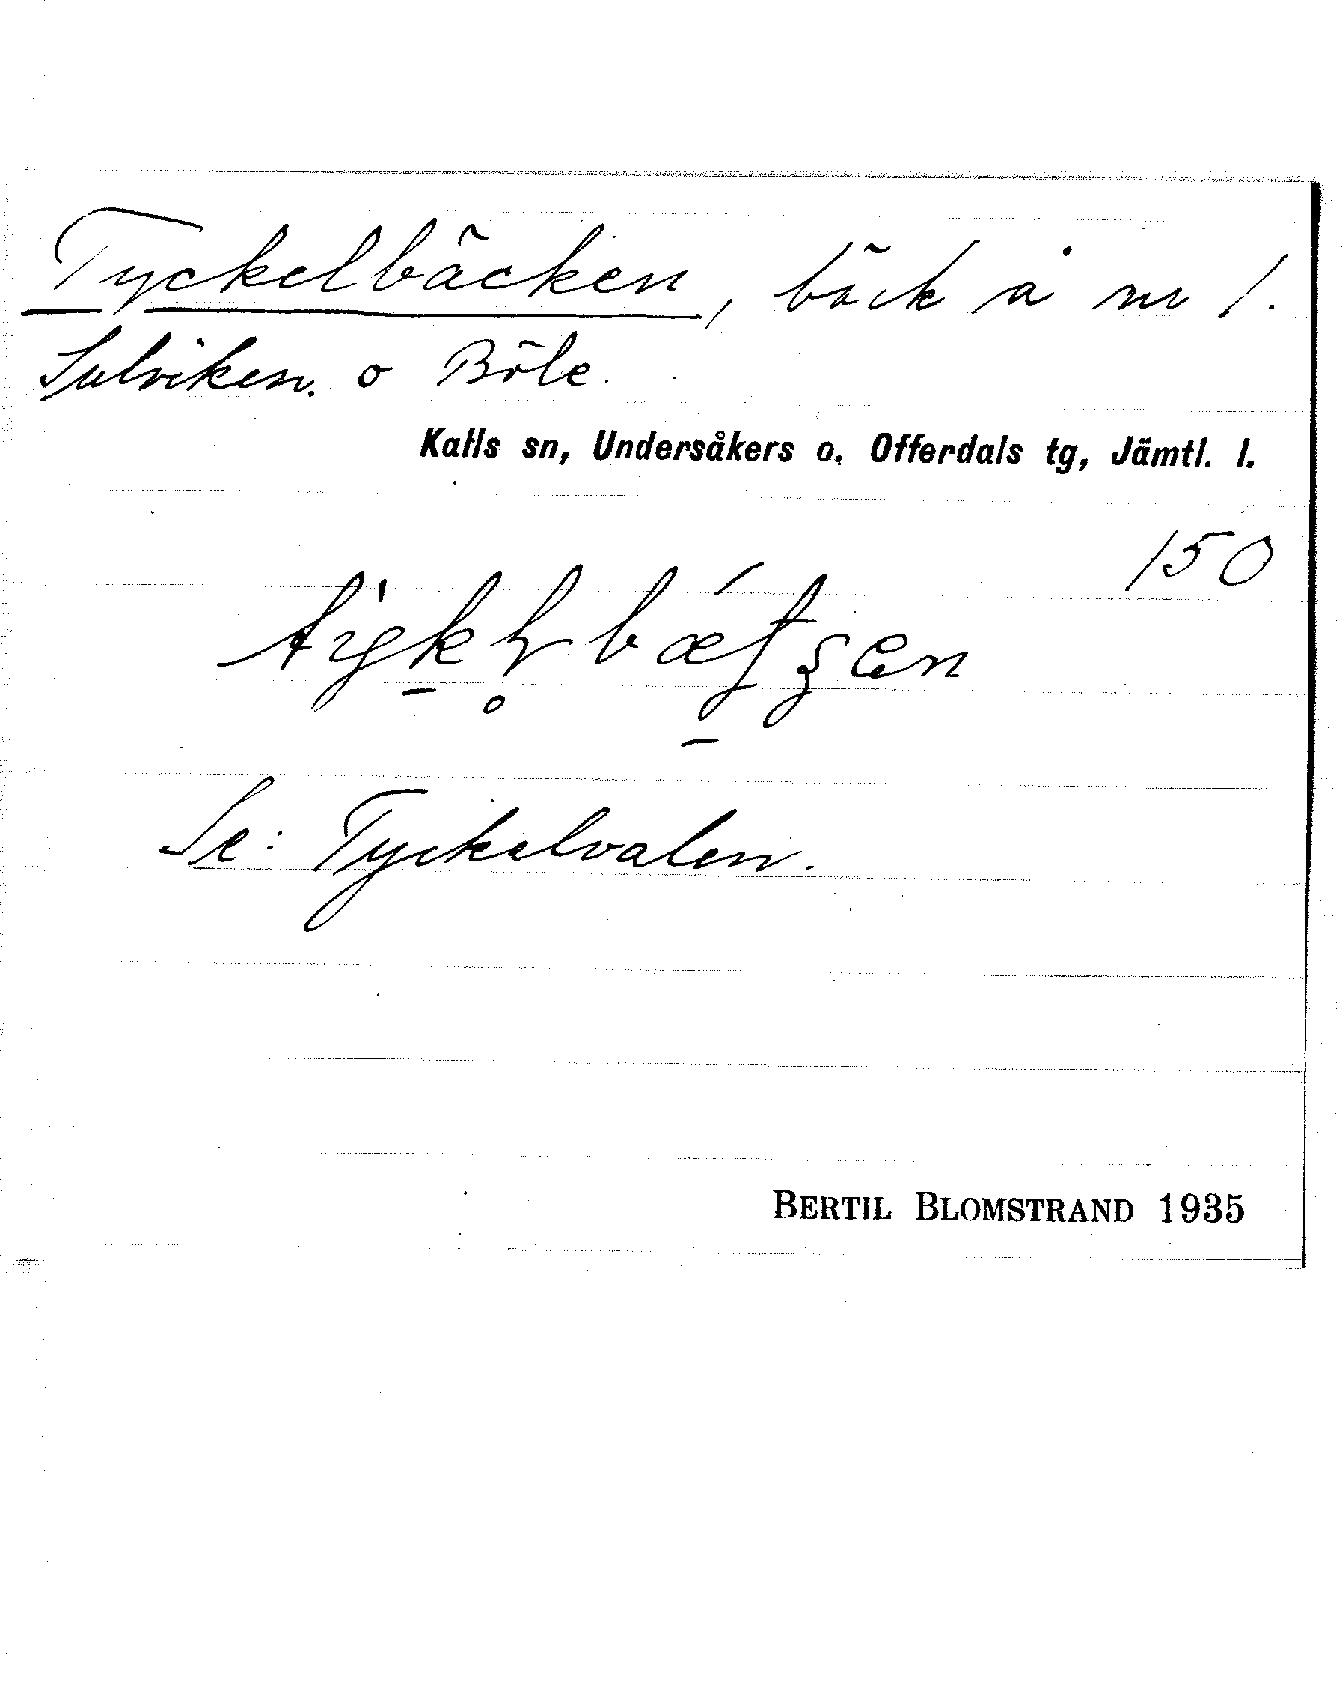 Tyckelbäcken, bäck å nr 1.
Sulviken. o Böle.
Kalls sn, Undersåkers o. Offerdals tg, Jämtl. l.
150
Se: Tyckelvalen.
BERTIL BLOMSTRAND 1935